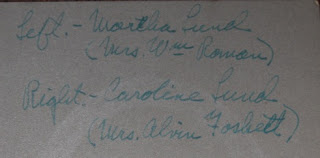 Left. - Martha Lund
(Mrs. Wm Roman)
Right. - Caroline Lund
(Mrs. Alvin Fosbett)